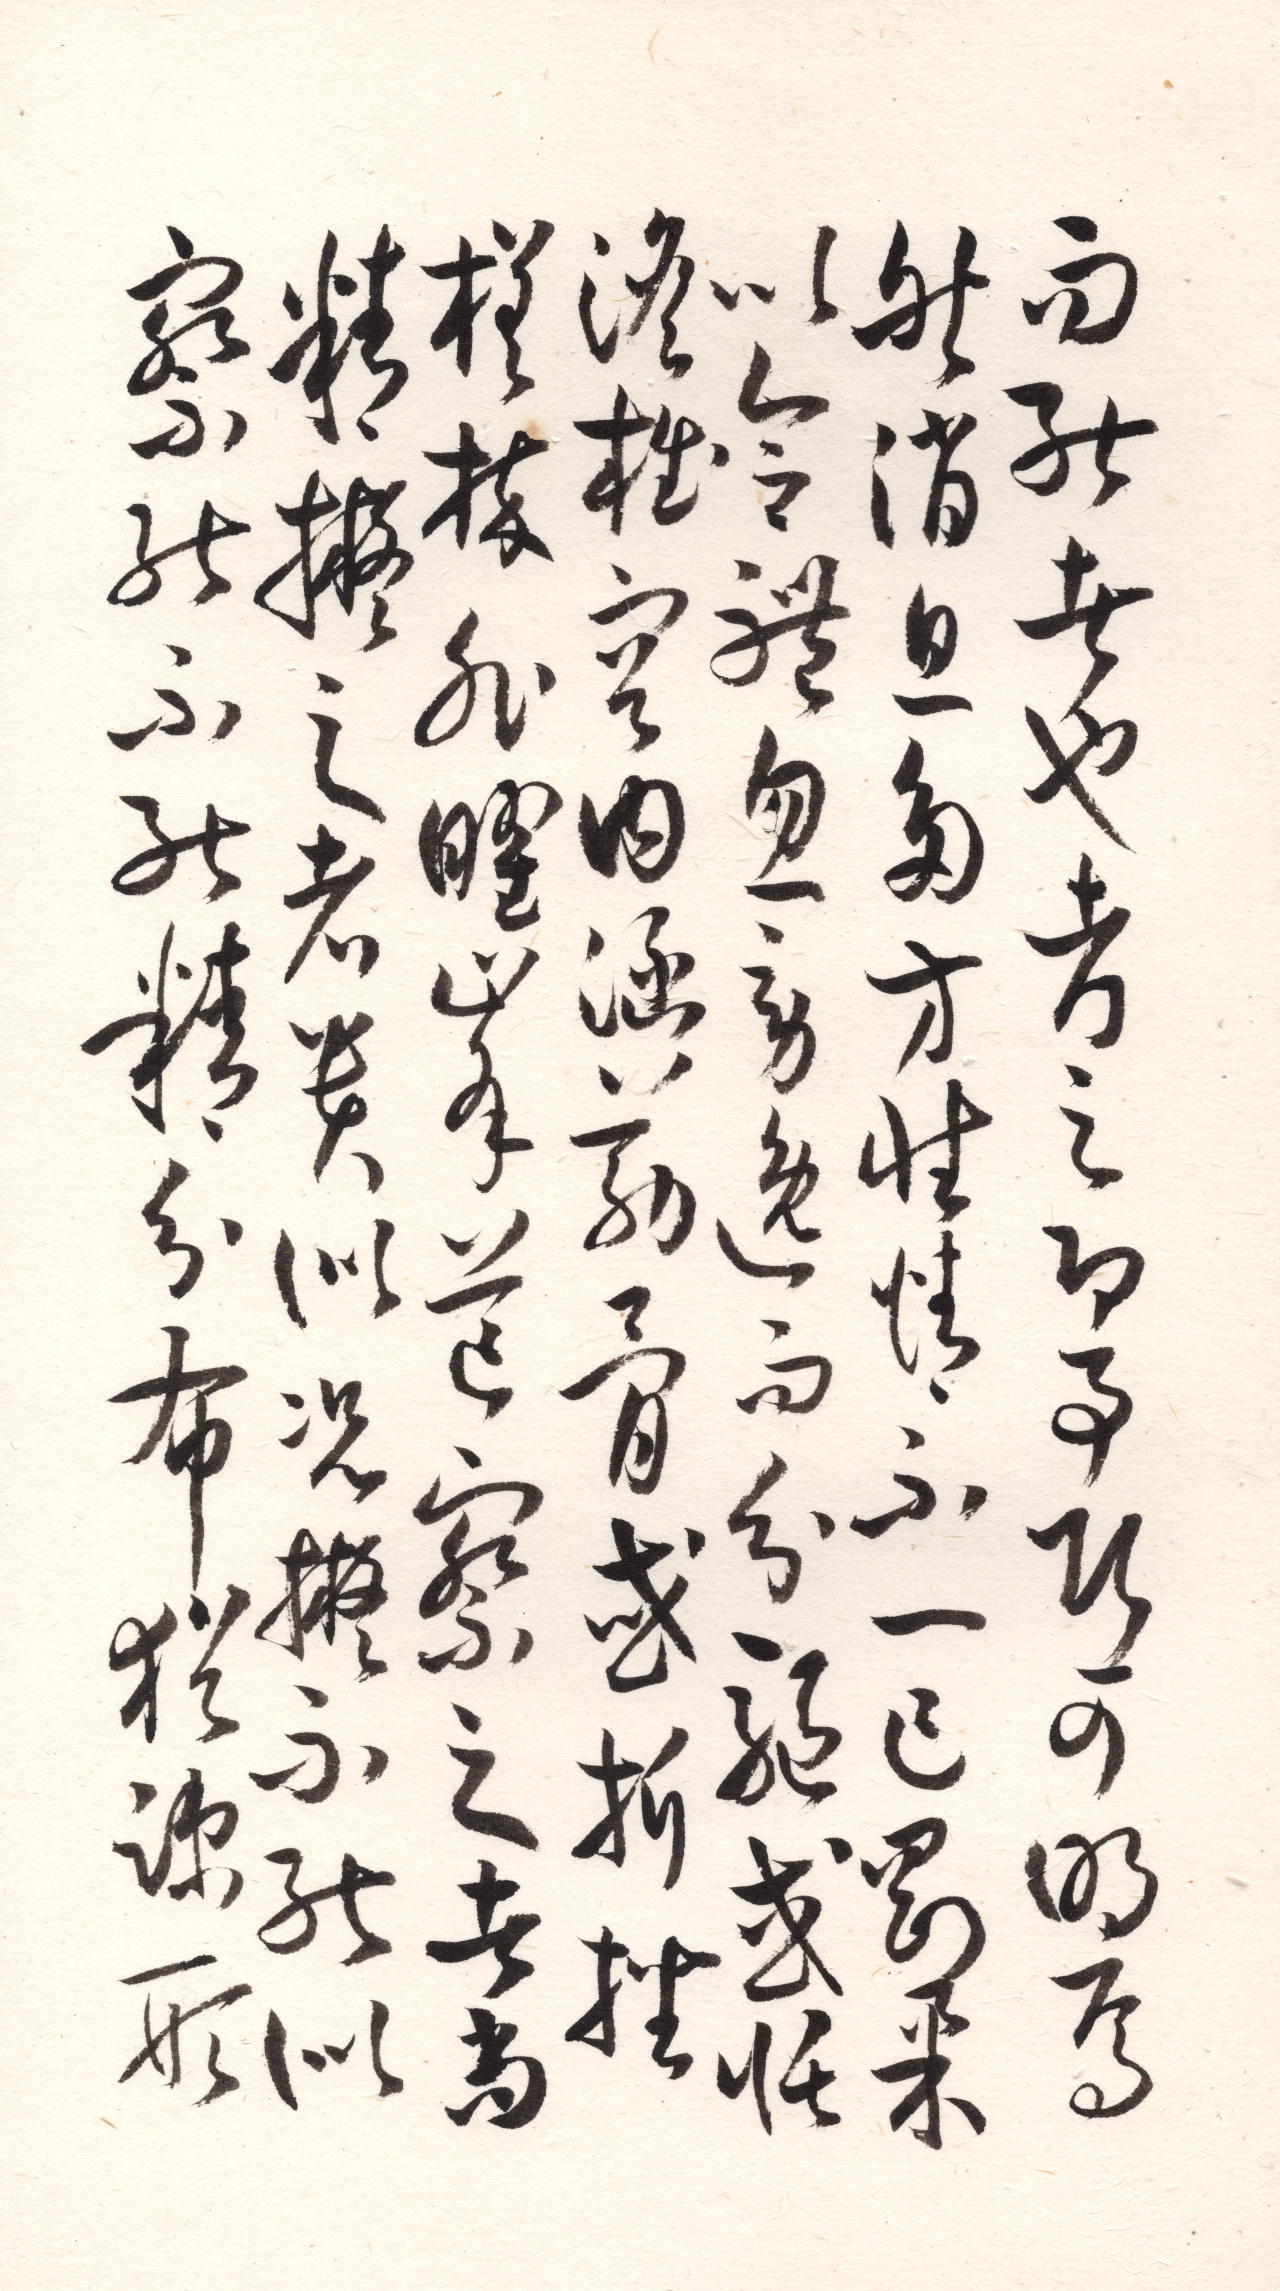 而能者也考之即事斷可明焉
然消息多方性情不一乍剛柔
以合體忽勞逸而分驅或恬
澹雍容內涵筋骨或折挫
槎枿外曜峯芒察之者尚
精擬之者貴似況擬不能似
察能不能精分布猶疎形